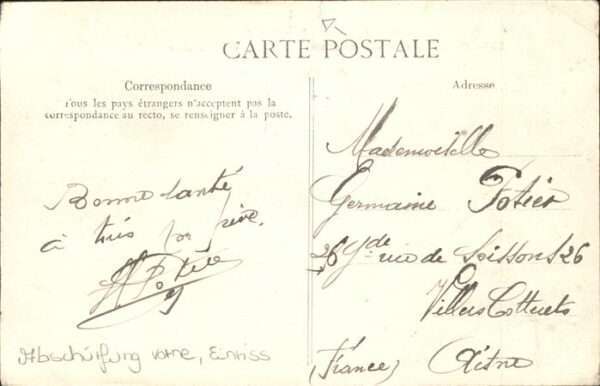 CARTE POSTALE
Correspondance
Tous les pays étrangers n'acceptent pas la
correspondance au recto, se renseigner à la poste.
Adresse
Bonne santé
à
Mademoiselle
Germaine Potier
26 Gde rue de Soissons 26
Villers Cotterets
(France) Aisne
Abschürfung vorne, Einriss